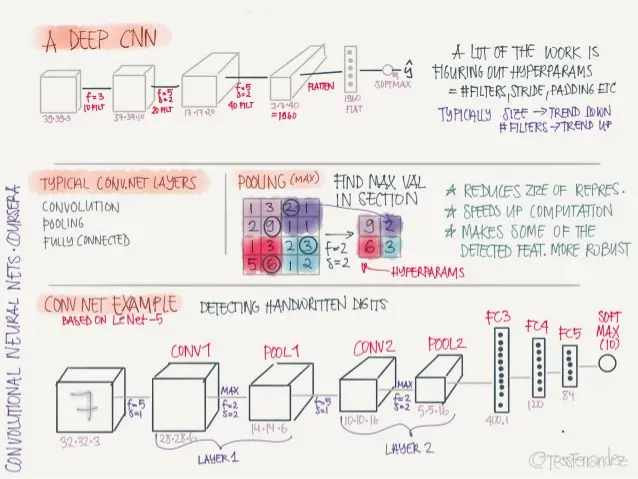 A DEEP CNN
39·39·3
f=3
10 FILT
37·37·10
f=5
s=2
20 FILT
17·17·20
f=5
s=2
40 FILT
7·7·40
=1960
FLATTEN
1960
FLAT
SOFTMAX
ŷ
A LOT OF THE WORK IS
FIGURING OUT HYPERPARAMS
= #FILTERS, STRIDE, PADDING ETC
TYPICALLY SIZE → TREND DOWN
# FILTERS → TREND UP
TYPICAL CONV.NET LAYERS
CONVOLUTION
POOLING
FULLY CONNECTED
POOLING (MAX)
FIND MAX VAL
IN SECTION
1 3 2 1
2 9 1 1
1 3 2 3
5 6 1 2
f=2
s=2
9 2
6 3
HYPERPARAMS
★ REDUCES SIZE OF REPRES.
★ SPEEDS UP COMPUTATION
★ MAKES SOME OF THE
DETECTED FEAT. MORE ROBUST
CONV NET EXAMPLE
BASED ON LeNet-5
DETECTING HANDWRITTEN DIGITS
7
32·32·3
f=5
s=1
CONV1
28·28·6
MAX
f=2
s=2
POOL1
14·14·6
LAYER 1
f=5
s=1
CONV2
10·10·16
MAX
f=2
s=2
POOL2
5·5·16
LAYER 2
FC3
400·1
FC4
120
FC5
84
SOFT
MAX
(10)
CONVOLUTIONAL NEURAL NETS · COURSERA
@TessFerrandez